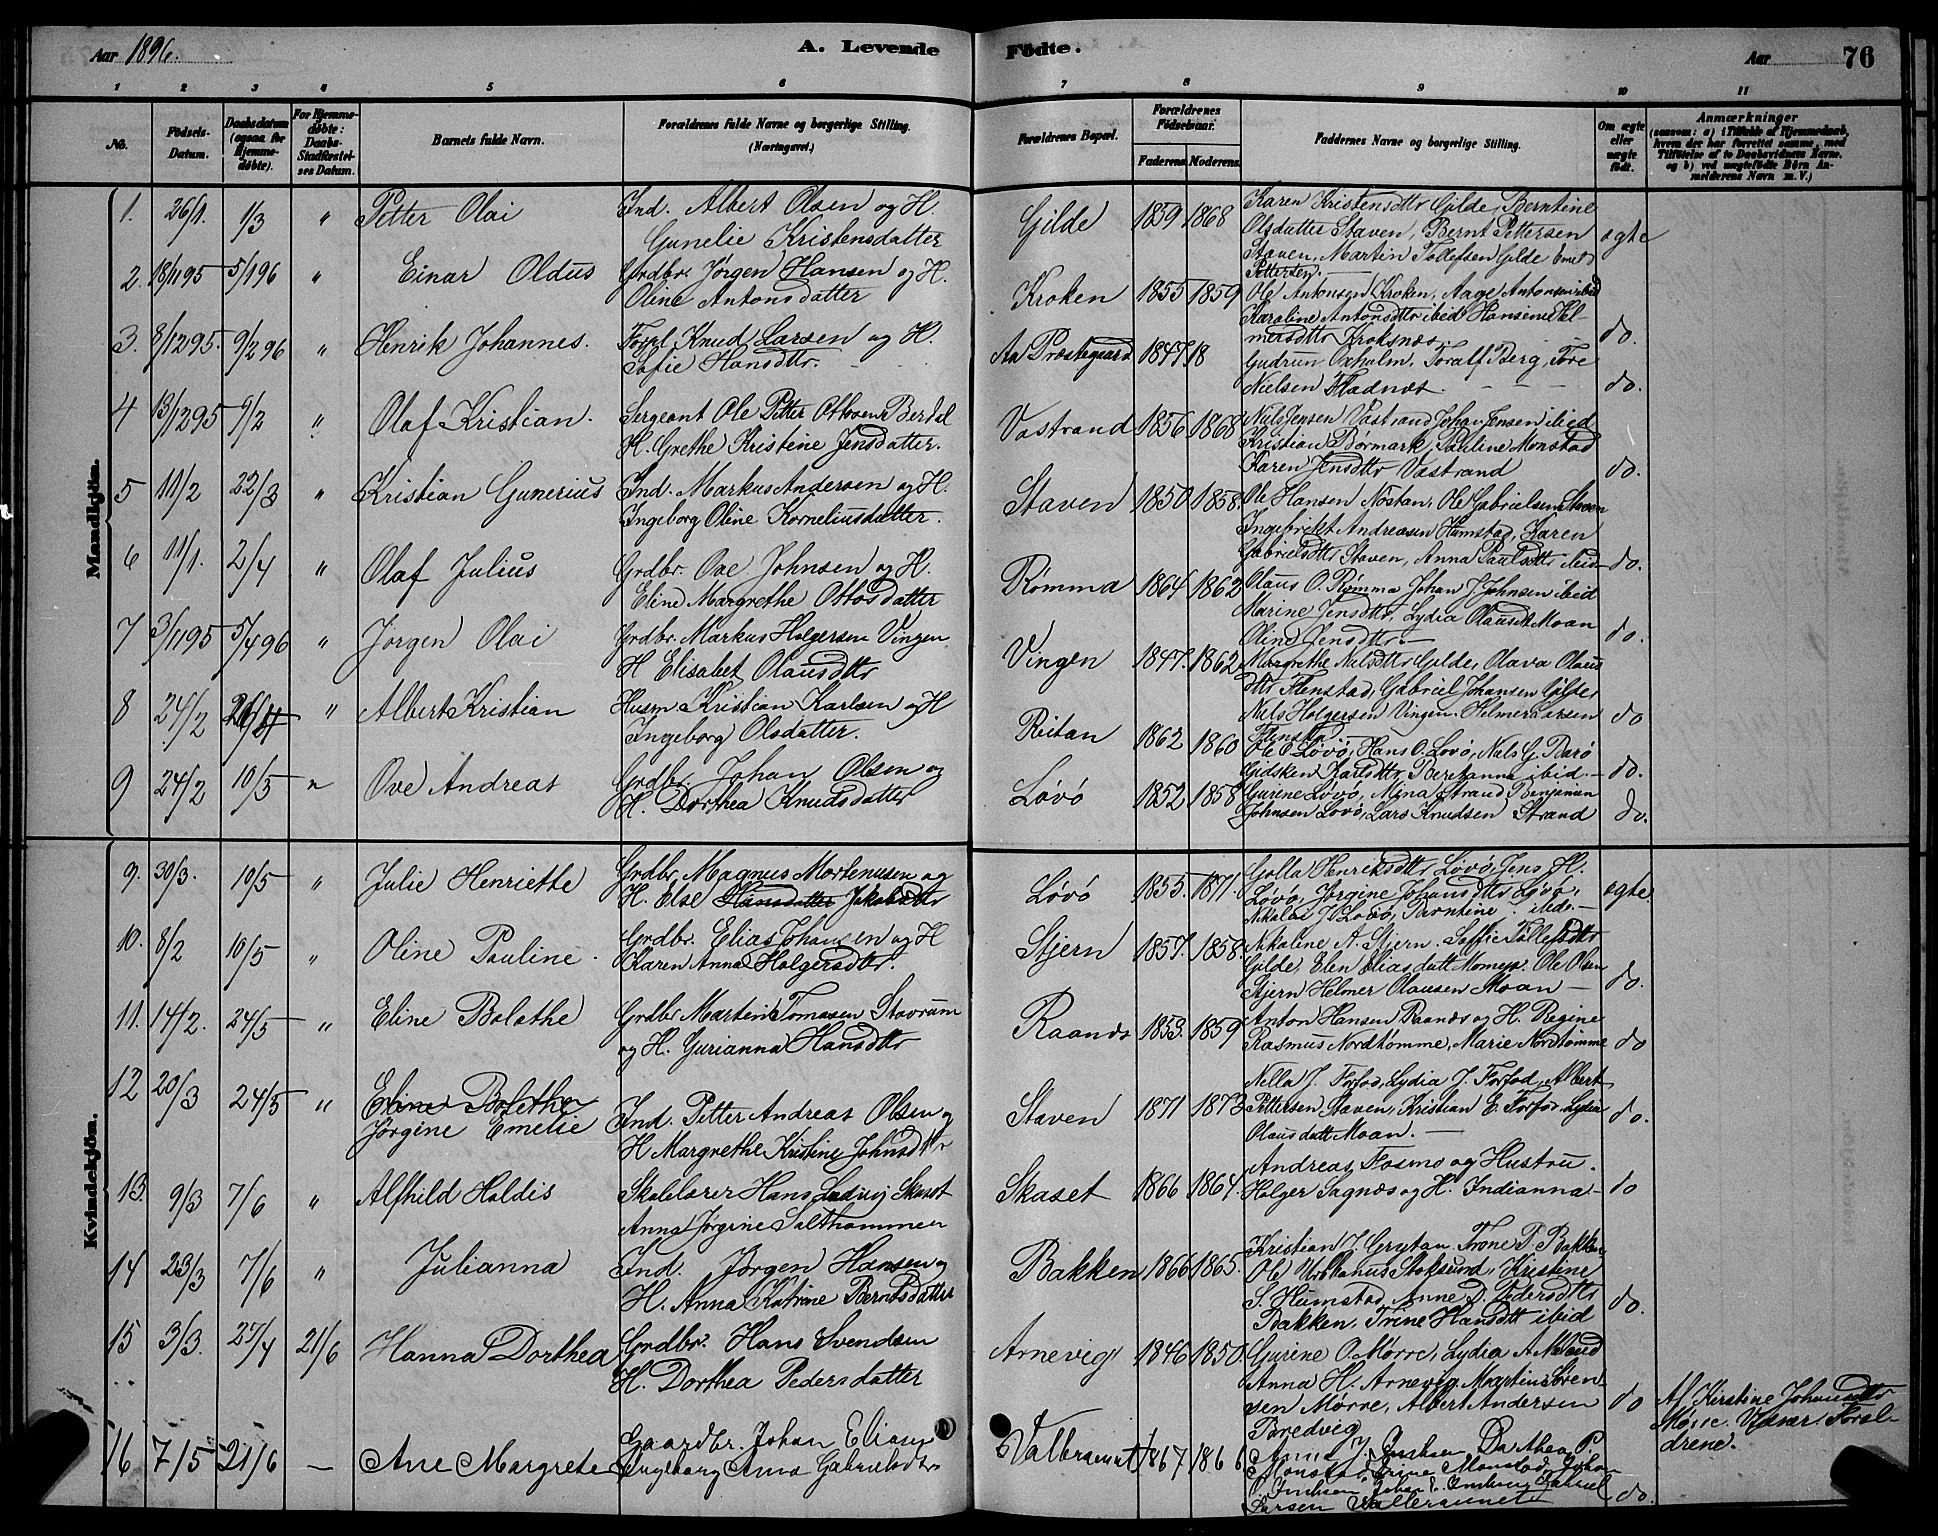 Aar 1896.
A. Levende Födte.
Aar 76
1 2 3 4 5 6 7 8 9 10 11
No.
Födsels-Datum.
Daabsdatum (ogsaa for Hjemmedøbte).
For Hjemmedøbte: Daabs-Stadfæstelses Datum.
Barnets fulde Navn.
Forældrenes fulde Navne og borgerlige Stilling. (Næringsvei.)
Forældrenes Bopæl.
Forældrenes Födselsaar.
Faderens. Moderens.
Faddernes Navne og borgerlige Stilling.
Om ægte eller uægte født.
Anmærkninger
(saasom: a) i Tilfælde af Hjemmedaab, hvem der har forrettet samme, med Tilföielse af to Daabsvidners Navne, og b) ved uægtefödte Börn Anmelderens Navn m. V.)
Mandkjön.
1. 26/1. 1/3 " Petter Olai
Ind. Albert Olsen og H.
Gunelie Kristensdatter
Gilde 1859 1868
Karen Kristensdttr Gilde, Berntine
Olsdatter Staven, Bernt Pettersen
Staven, Martin Tollefsen Gilde Emil
Pettersen.
ægte
2. 18/11 95 5/1 96 " Einar Oldus
Grdbr. Jørgen Hansen og H.
Oline Antonsdatter
Kroken 1855 1859
Ole Antonsen Kroken, Aage Antonsen ibid
Karoline Antonsdttr ibid Hansene Hel-
mersdttr Kroksnæs.
do.
3. 8/12 95. 9/2 96 " Henrik Johannes.
Forpl Knud Larsen og H.
Sofie Hansdttr.
Aa Præstegaard 1847 18
Gudrun Oxholm, Toralf Berg, Tore
Nielsen Fladnæs.
do.
4 13/12 95 9/2 " Olaf Kristian.
Sergeant Ole Petter Ottosen Berdal
H. Grethe Kristine Jensdatter.
Vastrand 1856 1868
Nils Jensen Vastrand, Johan Jensen ibid
Kristian Børmark, Pauline Monstad
Karen Jensdttr Vastrand
do.
5 11/2 22/3 " Kristian Gunerius
Ind. Markus Andersen og H.
Ingeborg Oline Korneliusdatter.
Staven 1850 1858.
Ole Hansen Nøstan, Ole Gabrielsen Staven
Ingebrikt Andreasen Humstad, Karen
Gabrielsdttr Staven, Anna Paulsdttr ibid
do.
6 11/1. 2/4 " Olaf Julius
Grdbr. Ove Johnsen og H.
Eline Margrethe Ottosdatter
Rømma 1864 1862
Olaus O. Rømma Johan J. Johnsen ibid
Marine Jensdttr, Lydia Olausdt Moan
Oline Jensdttr.
do.
7 3/11 95 5/4 96 " Jørgen Olai
Grdbr. Markus Holgersen Vingen
H Elisabet Olausdttr
Vingen 1847. 1862
Margrethe Nilsdttr Gilde, Olava Olaus
dttr Flenstad, Gabriel Johansen Gilde,
Nils Holgersen Vingen. Helmer Larsen
Flenstad.
do
8 24/2 26/4 " Albert Kristian
Husm Kristian Karlsen og H
Ingeborg Olsdatter.
Reitan 1862 1860
Ole O Løvø, Hans O. Løvø, Nils G Barø
Gidsken Karlsdttr, Beretanna ibid.
do.
9 24/2 10/5 " Ove Andreas
Grdbr. Johan Olsen og
H. Dorthea Knudsdatter
Løvø 1852 1858
Gurene Løvø, Mina Strand Benjamin
Johnsen Løvø, Lars Knudsen Strand
do.
Kvindekjön.
9. 30/3. 10/5 " Julie Henriette
Grdbr. Magnus Mortenusen og
H. Else Hansdatter Jakobsdttr
Løvø 1855. 1871.
Golla Henriksdttr Løvø, Jens H.
Løvø, Jørgine Johansdttr Løvø,
Nikolai J Løvø, Berntine ibid.
ægte
10. 8/2 10/5 " Oline Pauline
Grdbr. Elias Johansen og H
Karen Anna Holgersdttr.
Stjern 1857. 1858.
Nikoline A. Stjern. Soffie Tollefsdttr
Gilde, Elen Eliasdatt Momyr. Ole Olsen
Stjern Helmer Olausen Moan
do.
11. 14/2. 24/5 " Eline Bolethe
Grdbr Martin Tomasen Stavrum
og H. Gurianna Hansdttr
Raanæs 1853. 1859
Anton Hansen Raanæs og H. Regine
Rasmus Nordtømme, Marie Nordtømme
do
12 20/3 24/5 " Eline Bolethe
Jørgine Emelie
Ind. Petter Andreas Olsen og
H Margrethe Kristine Johnsdttr
Staven 1871 1873
Nella J. Forfod, Lydia J. Forfod, Albert
Pettersen Staven, Kristian E. Forfod Lydia
Olausdatt Moan.
do.
13. 9/3 7/6 " Alfhild Haldis
Skolelærer Hans Ludvig Skaset
Anna Jørgine Salthammer
Skaset 1866 1864.
Andreas Fosmo og Hustru.
Holger Sagnæs og H. Indianna
do
14 23/3 7/6 " Julianna
Ind. Jørgen Hansen og
H. Anna Katrine Berntsdatter
Bakken 1866 1865.
Kristian J Grytan. Trone P. Bakken
Ole Urbanus Stoksund, Kristine
S. Humstad, Anne D. Pedersdttr
Bakken, Trine Hansdtt ibid
do.
15 3/3. 27/4 21/6 Hanna Dorthea
Grdbr. Hans Svendsen
H. Dorthea Pedersdatter
Arnevig 1846 1850.
Gurine O. Mørre, Lydia A Meland
Anna H. Arnevig, Martinus Loren
sen Mørre, Albert Andersen
Bredvig
do
Af Kirstine Johansdttr
Mørre. Vidner: Foræl-
drene.
16 7/5 21/6 — Ane Margrete
Gaardbr. Johan Eliasen
Ingeborg Anna Gabrielsdtr
Valbraunet 1867 1866
Anna J.
Monstad, Trine Monstad, Johan
Larsen Valleraunet
do.